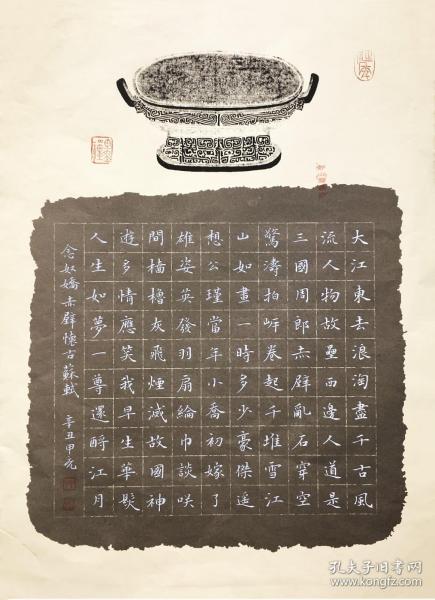 大江東去浪淘盡千古風
流人物故壘西邊人道是
三國周郎赤壁亂石穿空
驚濤拍岸卷起千堆雪江
山如畫一時多少豪傑遥
想公瑾當年小喬初嫁了
雄姿英發羽扇綸巾談咲
間檣櫓灰飛煙滅故國神
遊多情應笑我早生華髮
人生如夢一尊還酹江月
念奴嬌赤壁懷古蘇軾 辛丑甲元
孔夫子旧书网
www.kongfz.com